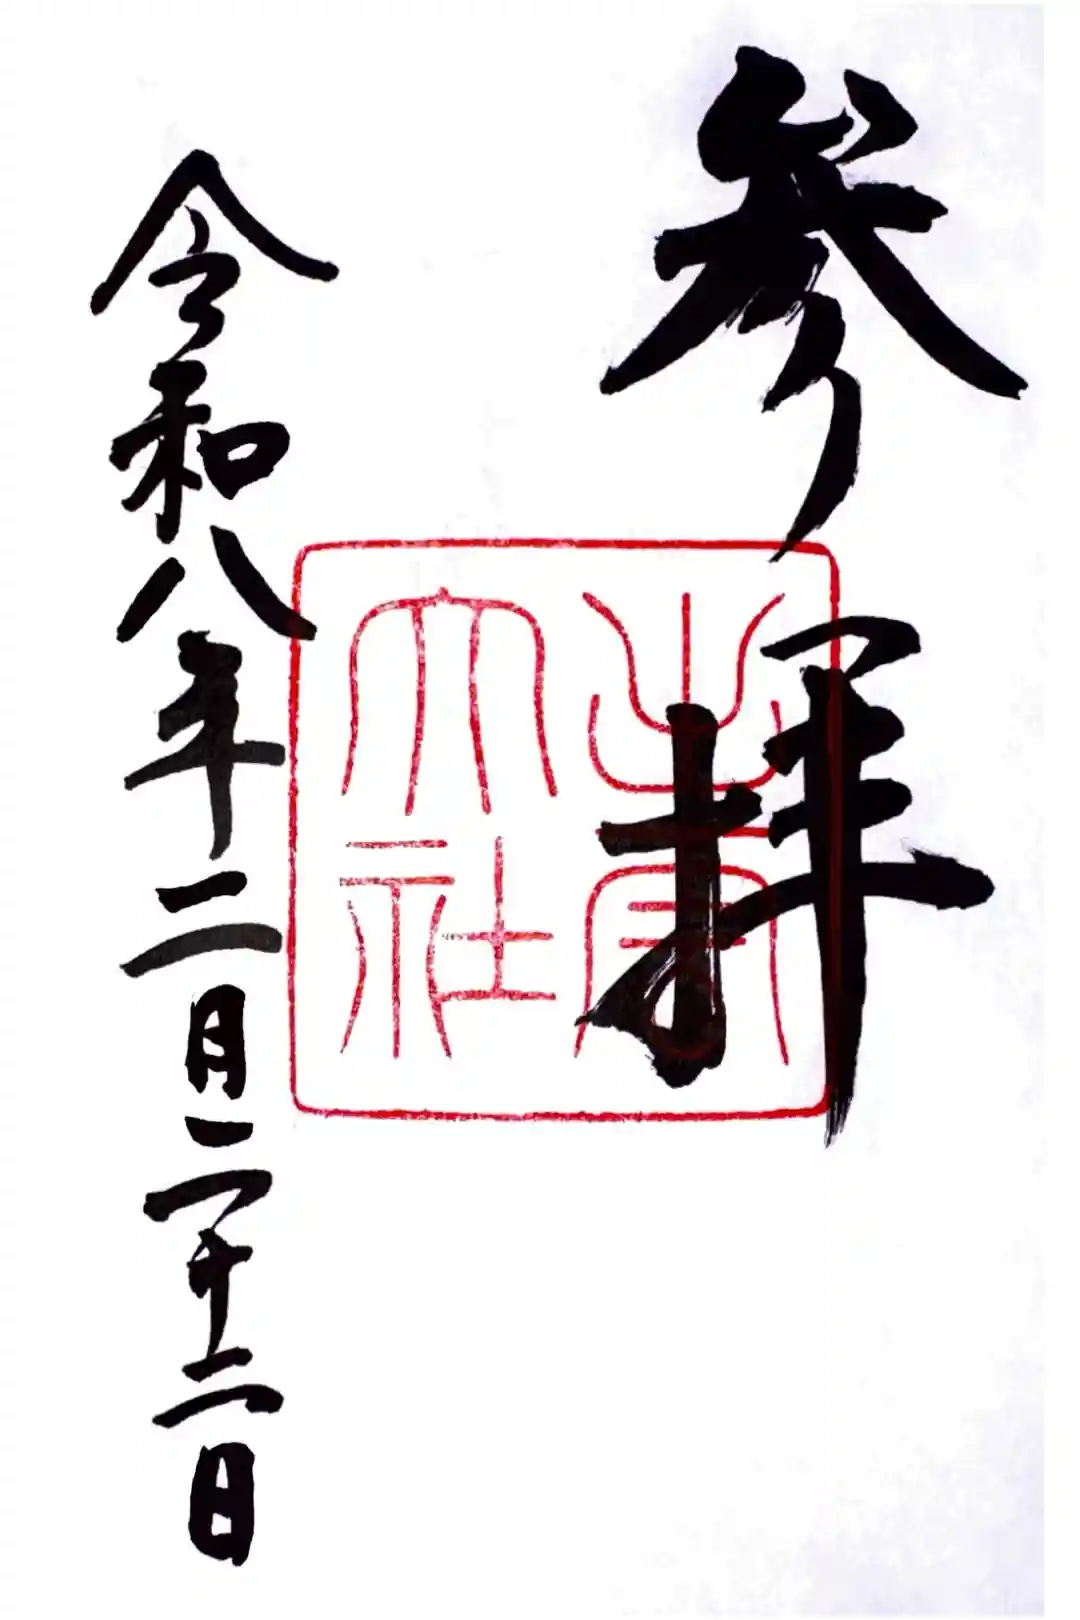 参拝
出雲
大社
令和八年二月二十二日